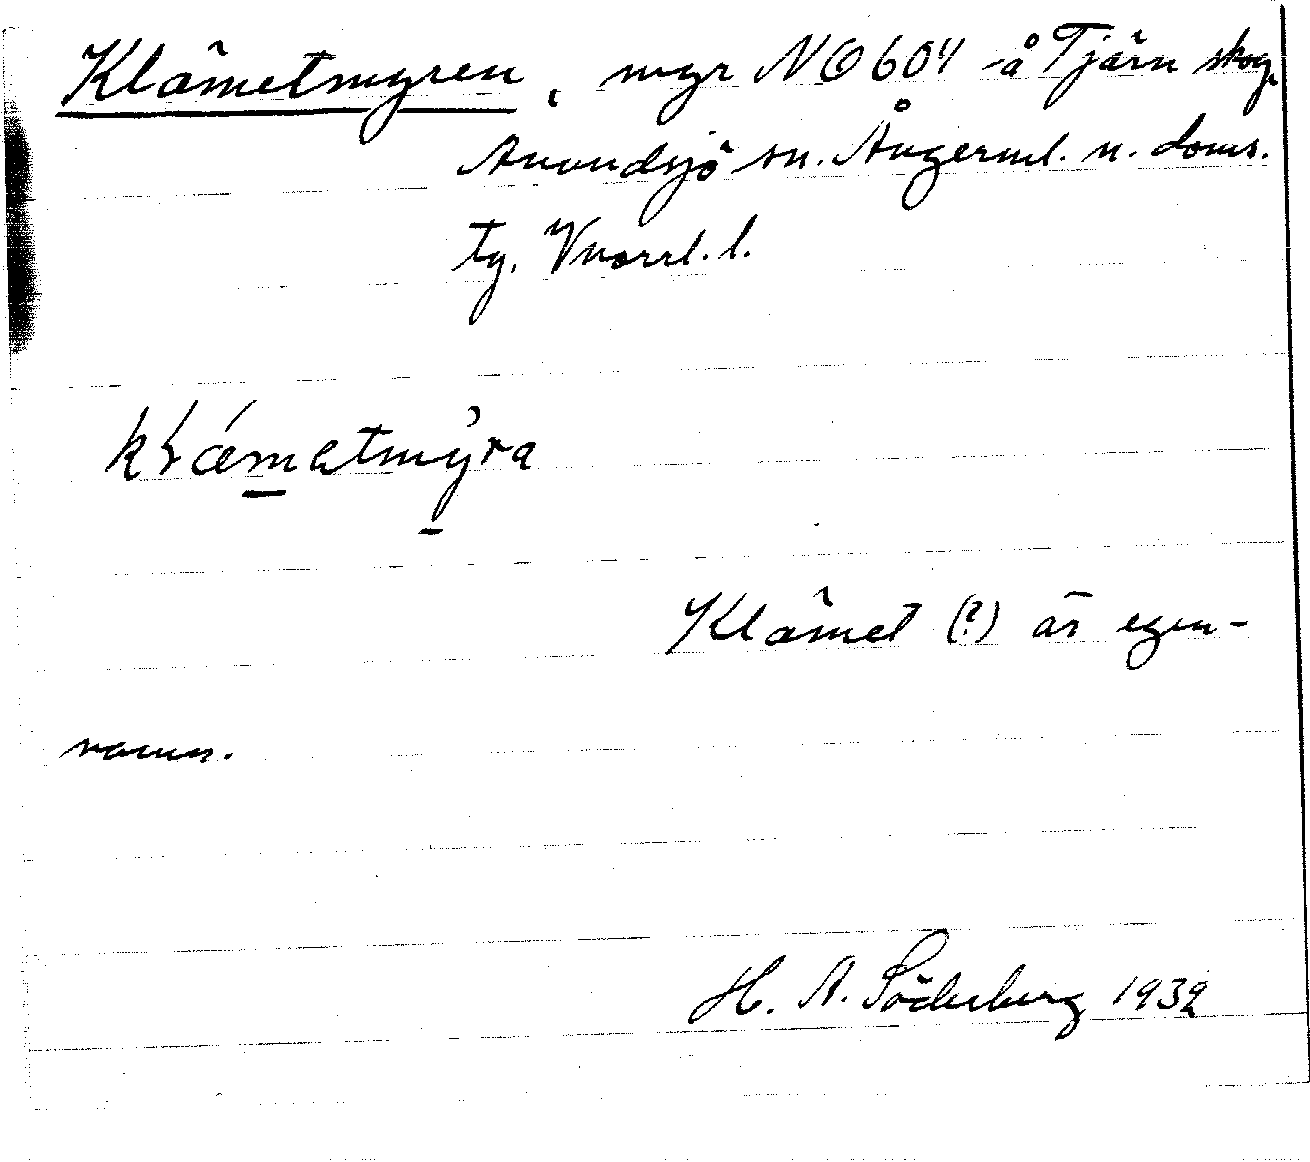 Klämetmyren, myr NO 604 å Tjärn skog,
Anundsjö sn. Ångerml. n. doms.
tg. Vnorrl. l.
Klämet (?) är egen-
namn.
H. A. Söderberg 1932